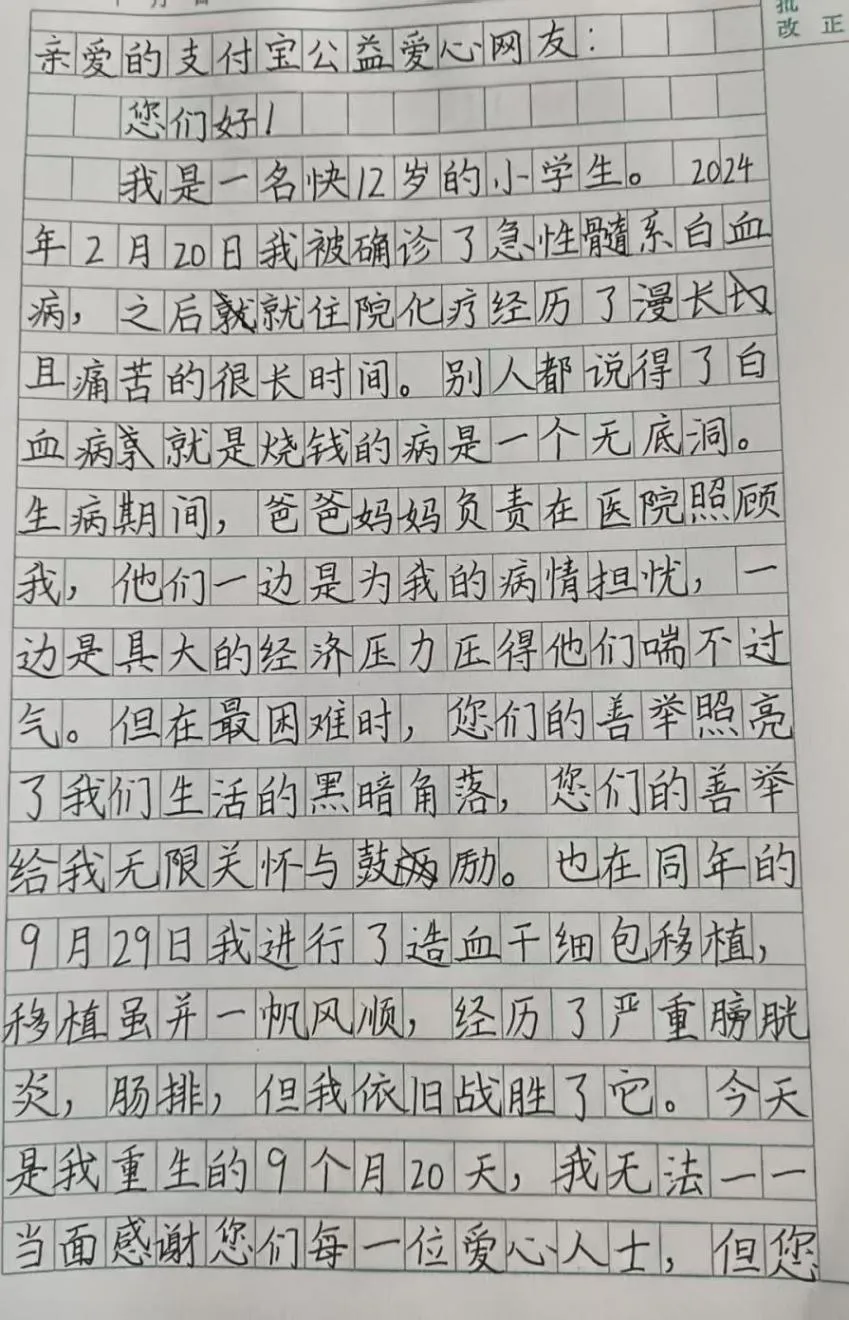 批
改 正
亲爱的支付宝公益爱心网友：
您们好！
我是一名快12岁的小学生。2024
年2月20日我被确诊了急性髓系白血
病，之后就就住院化疗经历了漫长
且痛苦的很长时间。别人都说得了白
血病就是烧钱的病是一个无底洞。
生病期间，爸爸妈妈负责在医院照顾
我，他们一边是为我的病情担忧，一
边是具大的经济压力压得他们喘不过
气。但在最困难时，您们的善举照亮
了我们生活的黑暗角落，您们的善举
给我无限关怀与鼓励。也在同年的
9月29日我进行了造血干细包移植，
移植虽并一帆风顺，经历了严重膀胱
炎，肠排，但我依旧战胜了它。今天
是我重生的9个月20天，我无法一一
当面感谢您们每一位爱心人士，但您